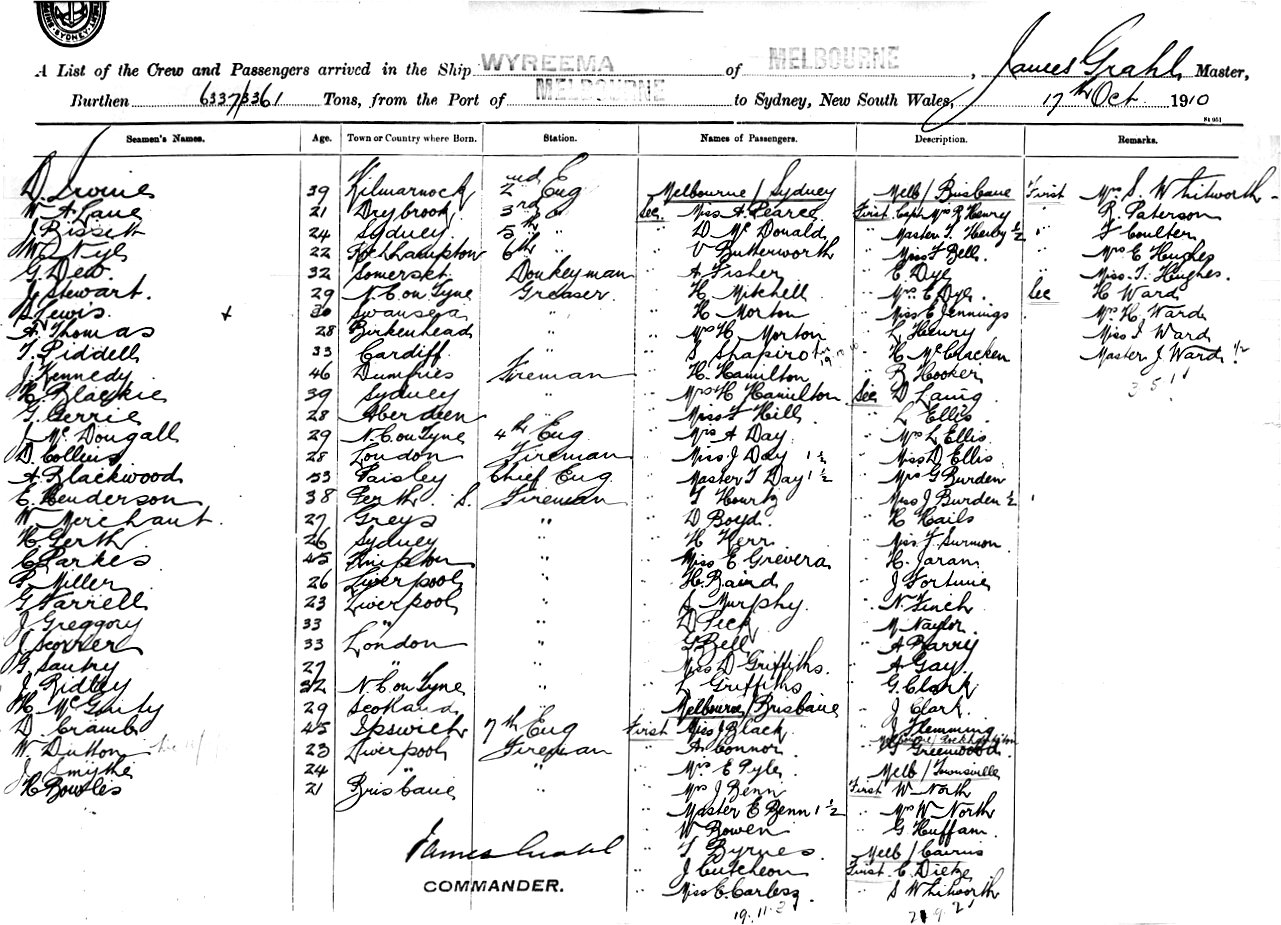 SYDNEY
A List of the Crew and Passengers arrived in the Ship WYREEMA of MELBOURNE, James Grahl, Master,
Burthen 6337/3361 Tons, from the Port of MELBOURNE to Sydney, New South Wales, 17th Oct 1910
Seamen's Names. Age. Town or Country where Born. Station. Names of Passengers. Description. Remarks.
D. Irvine 39 Kilmarnock 2nd Eng Melbourne / Sydney Melb / Brisbane First Mrs S. Whitworth
W. A. Lane 21 Drybrook 3rd " Sec. Miss A. Pearce First Capt. Mrs R Henry " R. Paterson
J Bissett 24 Sydney 5th " " D McDonald " Master T. Henry ½ " F Coulter
Nye 22 Rockhampton 6th " " V Butterworth " Miss F Bell " Mrs E Hughes
G. Dew 32 Somerset Donkeyman " A Fisher " E Dye " Miss. T. Hughes.
J Stewart. 29 N. C. on Tyne Greaser. " H Mitchell " Mrs. E Dye. Sec H Ward
S Lewis. 30 Swansea " " H Morton " Miss E Jennings " Mrs H. Ward
A Thomas 28 Birkenhead " " Mrs H Morton " L Henry " Miss I Ward
T. Liddell 33 Cardiff " " S Shapiro " H McCracken " Master J. Ward ½
J Kennedy 46 Dumfries Fireman " H. Hamilton " R Hooker
R Blackie 39 Sydney " " Mrs H Hamilton Sec D Laing
G. Gerrie 28 Aberdeen " " Miss F Hill " L Ellis
J McDougall 29 N. C. on Tyne 4th Eng " Mrs A Day " Mrs L Ellis
D. Collins 28 London Fireman " Miss J Day 1 ½ " Miss D Ellis
A. Blackwood 53 Paisley Chief Eng " Master T Day 1 ½ " Mrs G Burden
C. Henderson 38 Perth. S. Fireman " T Hourtz " Miss J Burden ½
W Merchant. 27 Greys " " D Boyd. " H Hails
H Gerth 26 Sydney " " H Kerr " Miss F. Surmon
C Parkes 45 Knipton " " Miss E Grevera " H. Jaram
P. Miller 26 Liverpool " " H. Baird " J Fortune
G Farrell 23 Liverpool " " J Murphy. " N. Finch
J Greggory 33 " " " D Peck " M Naylor
J Scorrer 33 London " " G Bell " A Barry
G. Santry 27 " " " Miss D Griffiths. " A Gay
J Ridley 32 N. C. on Tyne " " L Griffiths " G. Clark
H McGinty 29 Scotland " Melbourne / Brisbane " J Clark.
D Cramb 45 Ipswich 7th Eng First Miss J. Black. " J Flemming
W Dutton 23 Liverpool Fireman " A Connor. Melbourne / Rockhampton
G Greenwood
J. Smythe 24 " " " Mrs E Pyle. Melb / Townsville
H Bowles 21 Brisbane " " Mrs J Benn First W North
" Master E Benn 1 ½ " Mrs W North
" W Bowen " G Huffam.
James Grahl " T Byrnes. Melb / Cairns
" J Cutcheon First C. Dietze
COMMANDER. " Miss C. Carless " S Whitworth